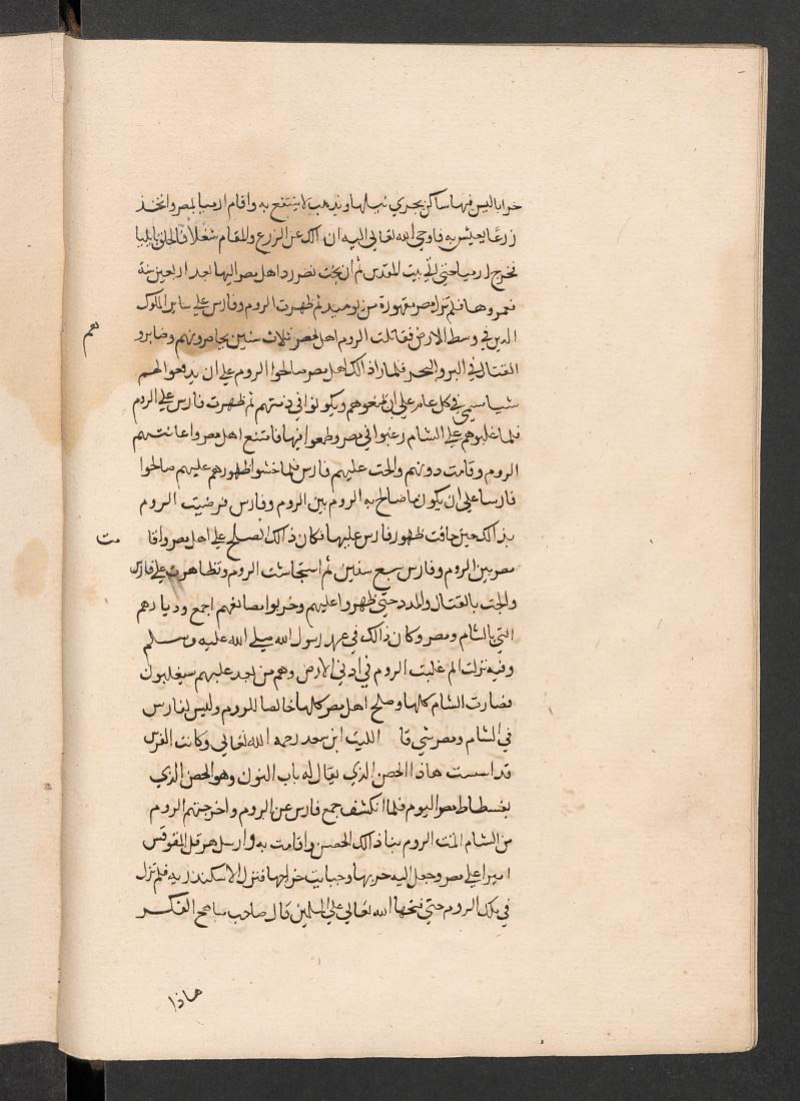 خرابا ليس فيها ساكن يجري نيلها ويذهب لا ينتفع به واقام ارميا بمصر واتخذ
زرعا يعيش به فاوحي الله تعالي اليه ان لك عن الزرع والمقام شغلا فالحق بايليا
فخرج ارميا حتي اتي بيت المقدس ثم ان بخت نصر رد اهل مصر اليها بعد اربعين سنة
فعمروها فلم تزل مصر مقهورة من يوميذ ثم ظهرت الروم وفارس علي ساير الملوك
الذين في وسط الارض فقاتلت الروم اهل مصر ثلاث سنين يحاصرونهم وصابرو
هم
القتال في البر والبحر فلما راذالك اهل مصر صالحوا الروم علي ان يدفعوا لهم
شيا سمي في كل عام علي ان يمنعوهم ويكونوا في ذمتهم ثم ظهرت فارس علي الروم
فلما غلبوهم علي الشام رغبوا في مصر وطمعوا فيها فامتنع اهل مصر واعانتهم
الروم وقامت دونهم والحت عليهم فارس فلما خشوا ظهورهم عليهم صالحوا
فارسا علي ان يكون ما صالح به الروم بين الروم وفارس فرضيت الروم
بذالك حين خافت ظهور فارس عليها فكان ذالك الصلح علي اهل مصر واقا
مت
مصر بين الروم وفارس سبع سنين ثم استجاشت الروم وتظاهرت علي فارس
والحت بالقتال والمدد حتي ظهروا عليهم وخربوا مصانعهم اجمع وديارهم
التي بالشام ومصر وكان ذالك في عهد رسول الله صلي الله عليه وسلم
وفيه نزلت الم غلبت الروم في ادني الارض وهم من بعد غلبهم سيغلبون
فصارت الشام كلها وصلح اهل مصر كلها خالصا للروم وليس لفارس
في الشام ومصر شي قا الليث ابن سعد رحمه الله تعالي وكانت الفرس
قد اسست هاذا الحصن الذي يقال له باب اليون وهو الحصن الذي
بفسطاط مصر اليوم فلما انكشف جمع فارس عن الروم واخرجتهم الروم
من الشام اتمت الروم بنا ذالك الحصن واقامت به وارسل هرقل المقوقس
اميرا علي مصر وجعل اليه حربها وجبايت خراجها فنزل الاسكندريه فلم تزل
في ملك الروم حتي فتحها الله تعالي علي المسلمين قال صاحب مباهج الفكر
هاذا